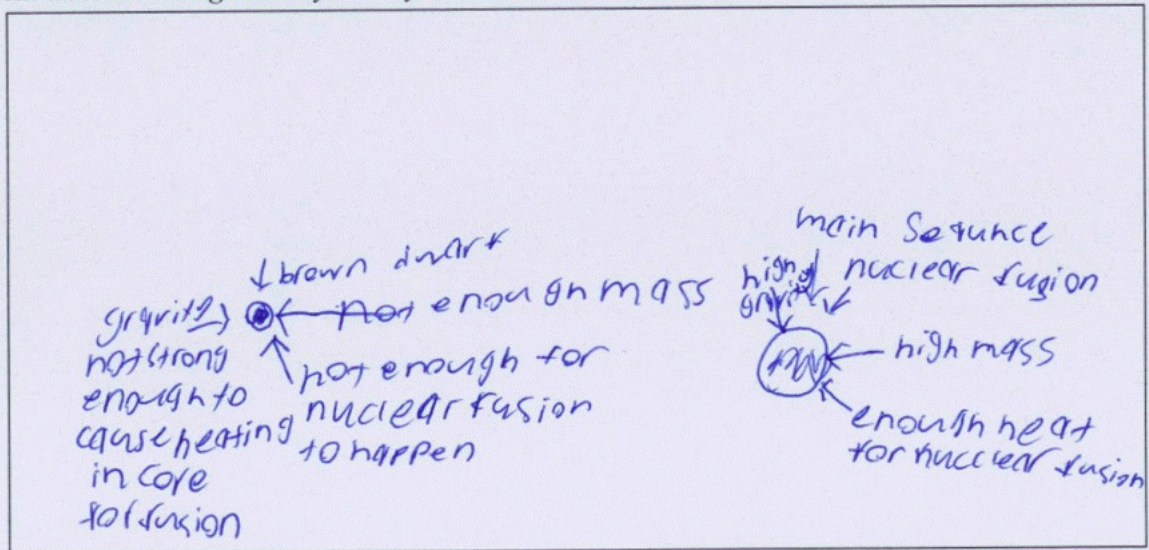 brown dwarf
gravity
not strong
enough to
cause heating
in core
for fusion
not enough mass
not enough for
nuclear fusion
to happen
main Sequnce
high
gravity
nuclear fusion
high mass
enough heat
for nucclear fusion